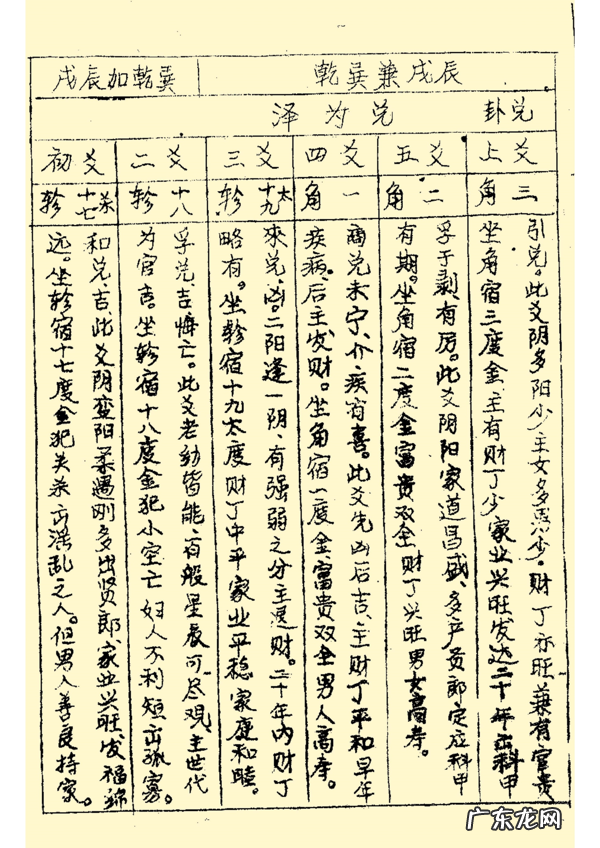 乾巽兼戌辰
戌辰加乾巽
兑卦
泽为兑
上爻
角三
引兑。此爻阴多阳少主女多男少。财丁亦旺兼有官贵
坐角宿三度金主有财丁少家业兴旺发达二十年出科甲
五爻
角二
孚于剥、有厉。此爻阴阳家道昌盛、多产贵郎定应科甲
有期。坐角宿二度金富贵双全财丁兴旺男女高寿。
四爻
角一
商兑未宁、介疾有喜。此爻先凶后吉、主财丁平和早年
疾病、后主发财。坐角宿一度金富贵双全男人高寿。
三爻
轸十九太
來兑、凶。二阳逢一阴、有强弱之分主退财。二十年内财丁
略有。坐轸宿十九太度财丁中平家业平稳家庭和睦。
二爻
轸十八
孚兑、吉悔亡。此爻老幼皆能、百般星辰可尽观、主世代
为官吉。坐轸宿十八度金犯小空亡妇人不利短出孤寡。
初爻
轸十七杀
和兑、吉、此爻阴变阳柔遇刚多出贤郎、家业兴旺发福绵
远。坐轸宿十七度金犯关杀出淫乱之人。但男人善良持家。
广东龙网